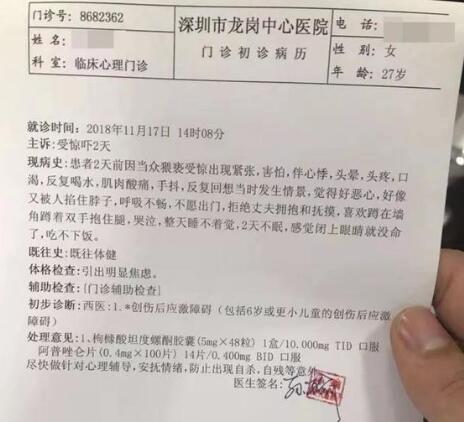 门诊号：8682362
深圳市龙岗中心医院
电话：
姓名：
门诊初诊病历
性别：女
科室：临床心理门诊
年龄：27岁
就诊时间：2018年11月17日 14时08分
主诉：受惊吓2天
现病史：患者2天前因当众猥亵受惊出现紧张，害怕，伴心悸，头晕，头疼，口
渴，反复喝水，肌肉酸痛，手抖，反复回想当时发生情景，觉得好恶心，好像
又被人掐住脖子，呼吸不畅，不愿出门，拒绝丈夫拥抱和抚摸，喜欢蹲在墙
角蹲着双手抱住腿，哭泣，整天睡不着觉，2天不眠，感觉闭上眼睛就没命
了，吃不下饭。
既往史：既往体健
体格检查：引出明显焦虑。
辅助检查：[门诊辅助检查]
初步诊断：西医：1.*创伤后应激障碍（包括6岁或更小儿童的创伤后应激
障碍）
处理意见：1、枸橼酸坦度螺酮胶囊(5mg×48粒) 1盒/10.000mg TID 口服
阿普唑仑片(0.4mg×100片) 14片/0.400mg BID 口服
尽快做针对心理辅导，安抚情绪，防止出现自杀，自残等意外
医生签名：